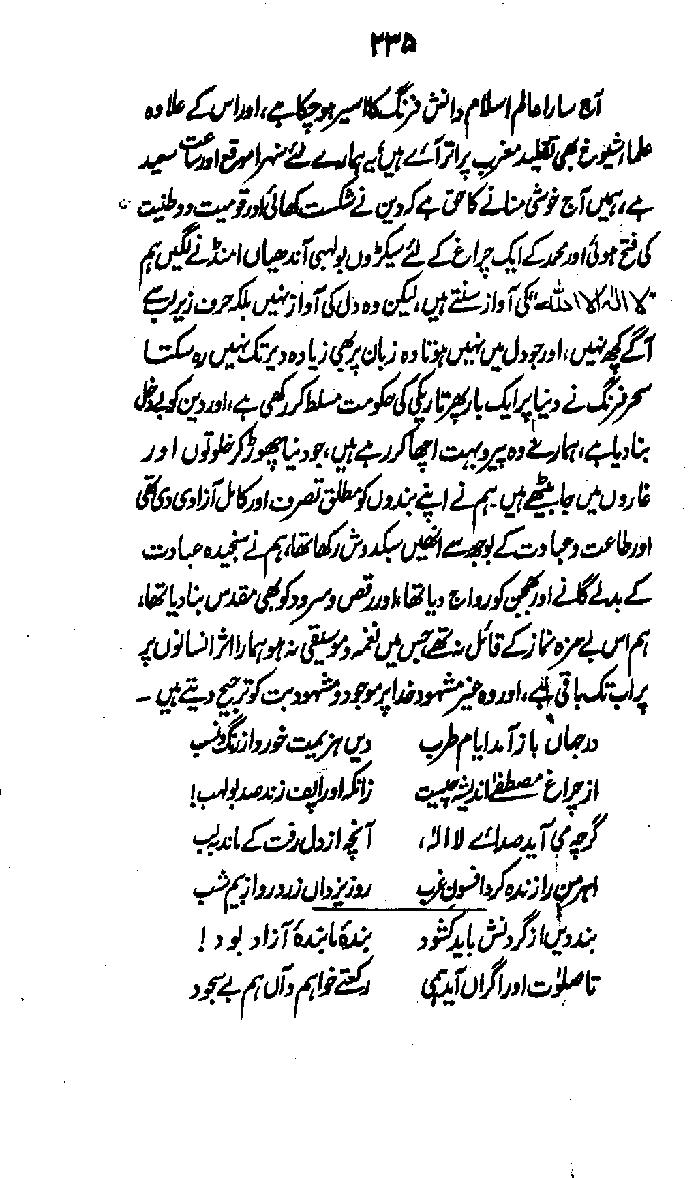 ۲۳۵
آج سارا عالم اسلام دانش فرنگ کا اسیر ہو چکا ہے، اور اس کے علاوہ
علماء شیوخ بھی تقلید مغرب پر اتر آئے ہیں یہ ہمارے لئے سنہرا موقع اور ساعت سعید
ہے، ہمیں آج خوشی منانے کا حق ہے کہ دین نے شکست کھائی اور قومیت و وطنیت
کی فتح ہوئی اور محمد کے ایک چراغ کے لئے سیکڑوں بولہبی آندھیاں امنڈنے لگیں ہم
"لا الٰہ الا اللہ" کی آواز سنتے ہیں، لیکن وہ دل کی آواز نہیں بلکہ حرف زیر لب سے
آگے کچھ نہیں، اور جو دل میں نہیں ہوتا وہ زبان پر بھی زیادہ دیر تک نہیں رہ سکتا
سحر فرنگ نے دنیا پر ایک بار پھر تاریکی کی حکومت مسلط کر رکھی ہے، اور دین کو بے دخل
بنا دیا ہے، ہمارے وہ پیرو بہت اچھا کر رہے ہیں، جو دنیا چھوڑ کر خلوتوں اور
غاروں میں جا بیٹھے ہیں ہم نے اپنے بندوں کو مطلق تصرف اور کامل آزادی دی تھی
اور طاعت و عبادت کے بوجھ سے انھیں سبکدوش رکھا تھا، ہم نے سنجیدہ عبادت
کے بدلے گانے اور بھجن کو رواج دیا تھا، اور رقص و سرود کو بھی مقدس بنا دیا تھا،
ہم اس بے مزہ نماز کے قائل نہ تھے جس میں نغمہ و موسیقی نہ ہو ہمارا اثر انسانوں پر
پر اب تک باقی ہے، اور وہ غیر مشہود خدا پر موجود و مشہود بت کو ترجیح دیتے ہیں۔
در جہاں باز آمد ایام طرب دیں ہزیمت خورد از رنگ و نسب
از چراغ مصطفےٰ اندیشہ چیست زانکہ او را پف زند صد بولہب!
گرچہ می آید صدائے لا الٰہ، آنچہ از دل رفت کے ماند بلب
اہرمن را زندہ کرد افسون غرب روز یزداں زرد رو از بیم شب
بند دیں از گردنش باید کشود بندۂ ما بندۂ آزاد بود!
تا صلوٰت او را گراں آید ہمی رکعتے خواہیم و آں ہم بے سجود